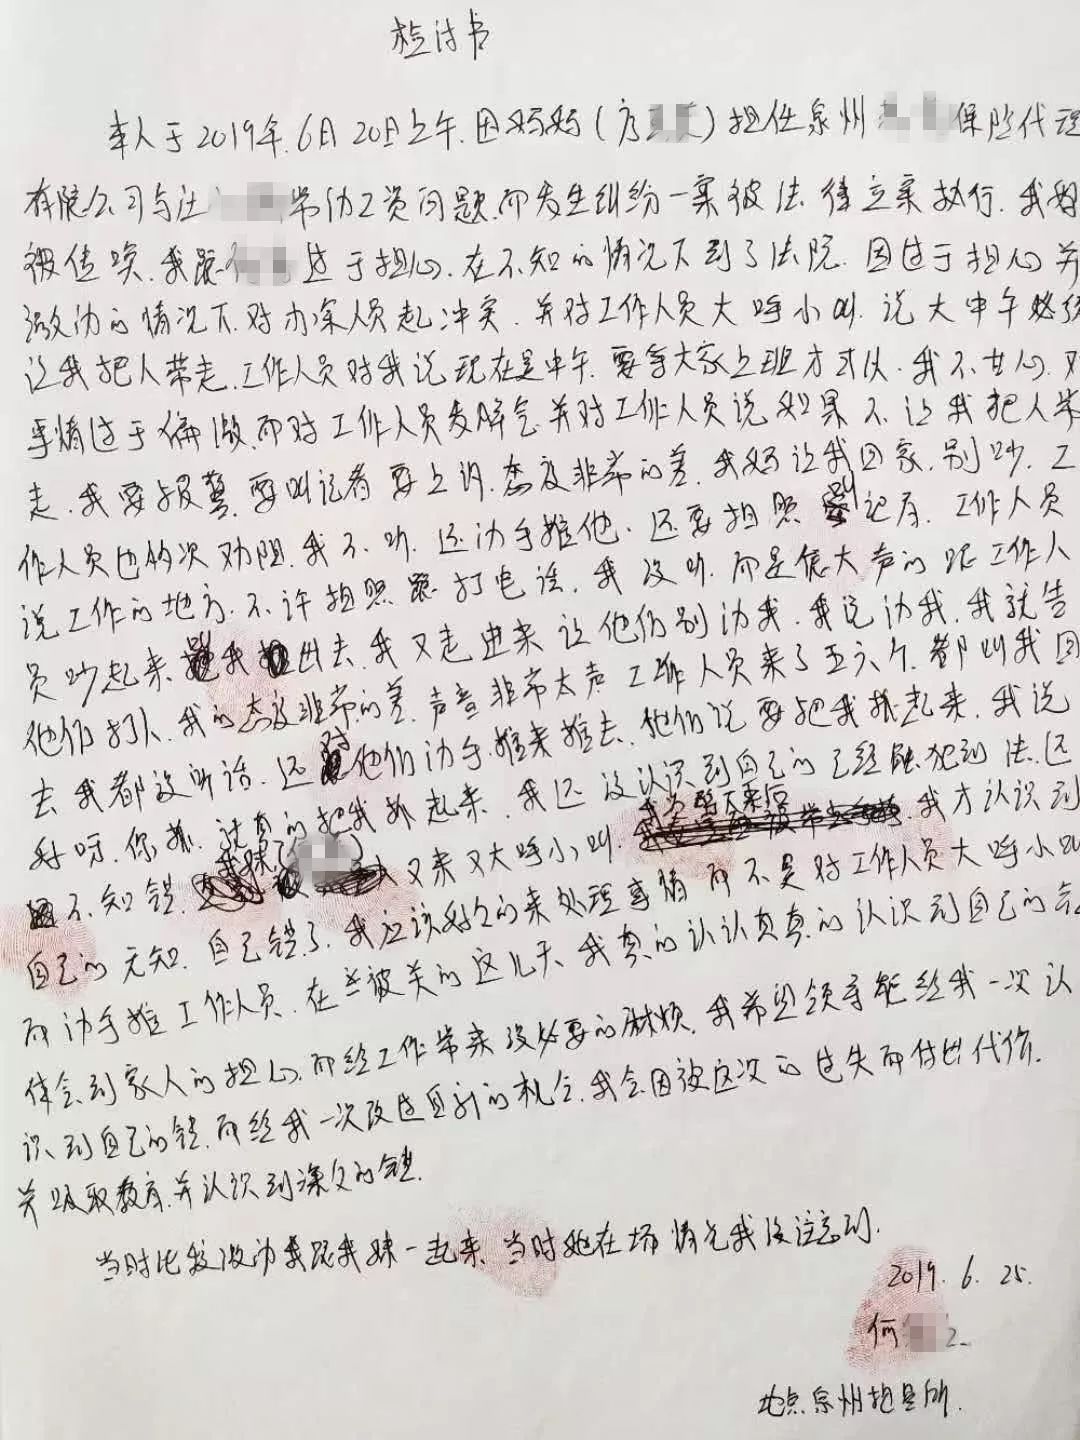 检讨书
本人于2019年.6月20日上午.因妈妈(方)担任泉州保险代理
有限公司与江劳动工资问题.而发生纠纷一案被法律立案执行.我妈
被传唤.我跟过于担心.在不知的情况下到了法院.因过于担心并
激动的情况下.对办案人员起冲突.并对工作人员大呼小叫.说大中午
让我把人带走.工作人员对我说现在是中午.要等大家上班才可以.我不甘心.对
事情过于偏激.而对工作人员发脾气.并对工作人员说如果不让我把人带
走.我要报警.要叫记者要上访.态度非常的差.我妈让我回家.别吵.工
作人员也多次劝阻.我不听.还动手推他.还要拍照叫记者.工作人员
说工作的地方.不许拍照跟打电话.我没听.而是很大声的跟工作人
员吵起来.我出去.我又走进来让他们别动我.我说动我.我就告
他们打人.我的态度非常的差.声音非常大声工作人员来了五六个.都叫我回
去我都没听话.还对他们动手.推来推去.他们说要把我抓起来.我说
好呀.你抓.就真的把我抓起来.我还没认识到自己的已经触犯到法.还
不知错.我妹了又来又大呼小叫.我才认识到
自己的无知.自己错了.我应该好好的来处理事情而不是对工作人员大呼小叫
而动手推工作人员.在被关的这几天.我真的认认真真的认识到自己的错
体会到家人的担心.而给工作带来没必要的麻烦.我希望领导能给我一次认
识到自己的错.而给我一次改过自新的机会.我会因被这次的过失而付出代价.
并吸取教育.并认识到深久的错.
当时比较激动我跟我妹一起来.当时她在场情况我没注意到.
2019.6.25.
何
地点泉州拘留所.